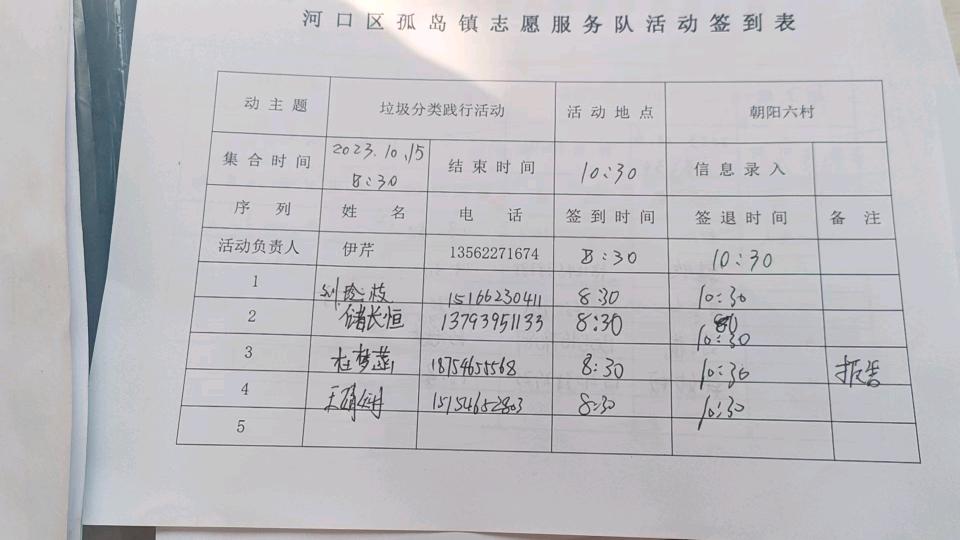 河口区孤岛镇志愿服务队活动签到表
动主题 垃圾分类践行活动 活动地点 朝阳六村
集合时间 2023.10.15 8:30 结束时间 10:30 信息录入
序列 姓名 电话 签到时间 签退时间 备注
活动负责人 伊芹 13562271674 8:30 10:30
1 刘 枝 15166230411 8:30 10:30
2 储长恒 13793951133 8:30 10:30
3 杜梦蕊 18754655568 8:30 10:30 报告
4 王 15154652803 8:30 10:30
5